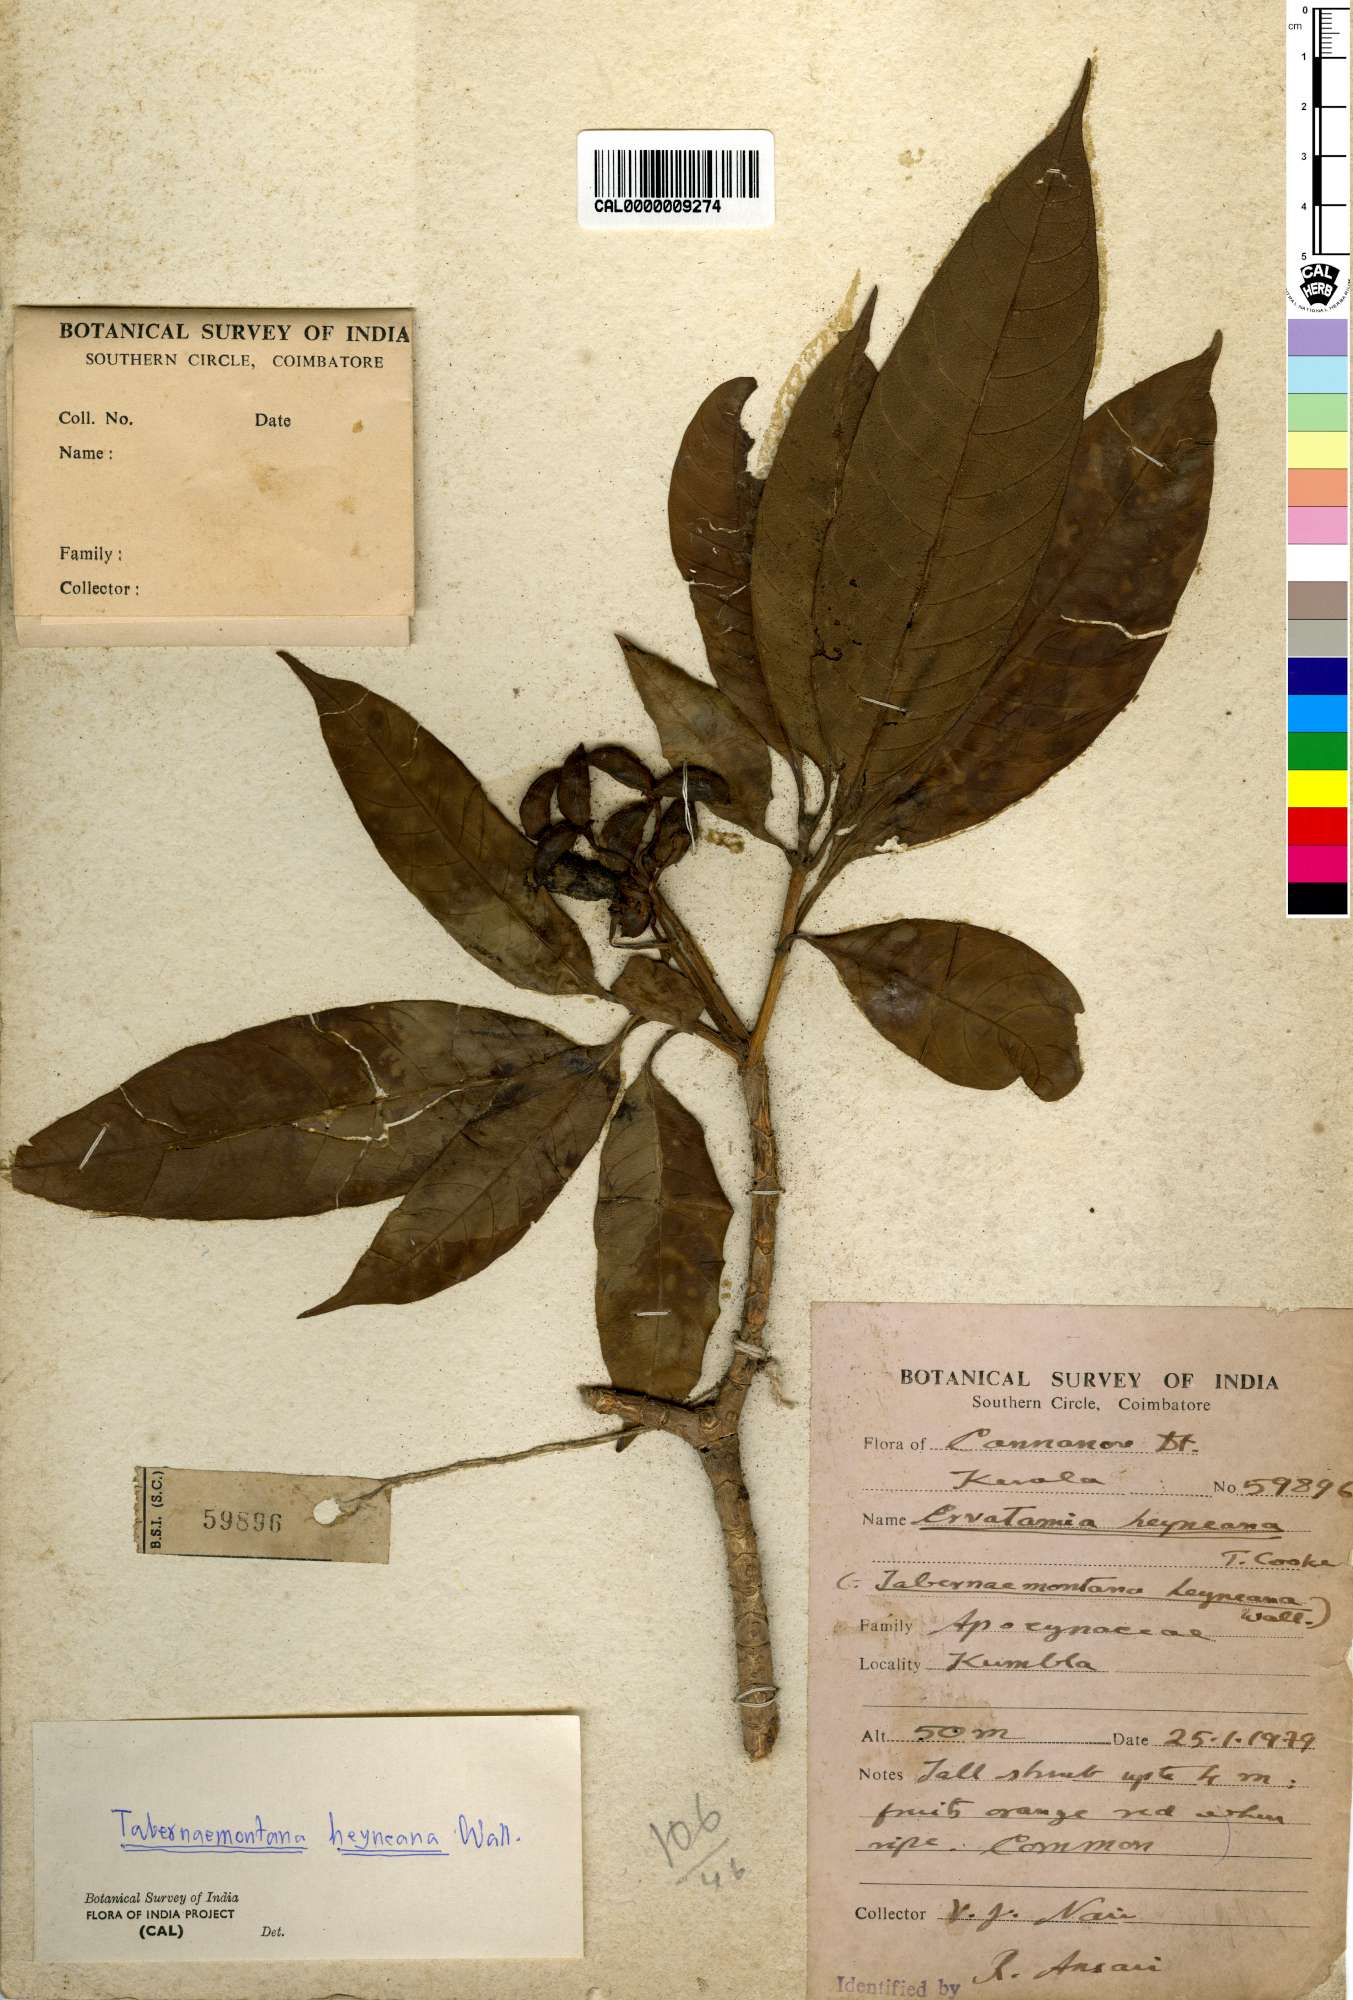 0
cm
1
2
3
4
5
CAL
HERB
CAL0000009274
BOTANICAL SURVEY OF INDIA
SOUTHERN CIRCLE, COIMBATORE
Coll. No. Date
Name :
Family :
Collector :
B.S.I. (S.C.)
59896
BOTANICAL SURVEY OF INDIA
Southern Circle, Coimbatore
Flora of Cannanore Dt.
Kerala No 59896
Name Ervatamia heyneana
T. Cooke
(= Tabernaemontana heyneana
Wall.)
Family Apocynaceae
Locality Kumbla
Alt. 50 m Date 25.1.1979
Notes Tall shrub upto 4 m ;
fruits orange red when
ripe. Common
Collector V. J. Nair
Identified by R. Ansari
Tabernaemontana heyneana Wall.
Botanical Survey of India
FLORA OF INDIA PROJECT
(CAL) Det.
106
46